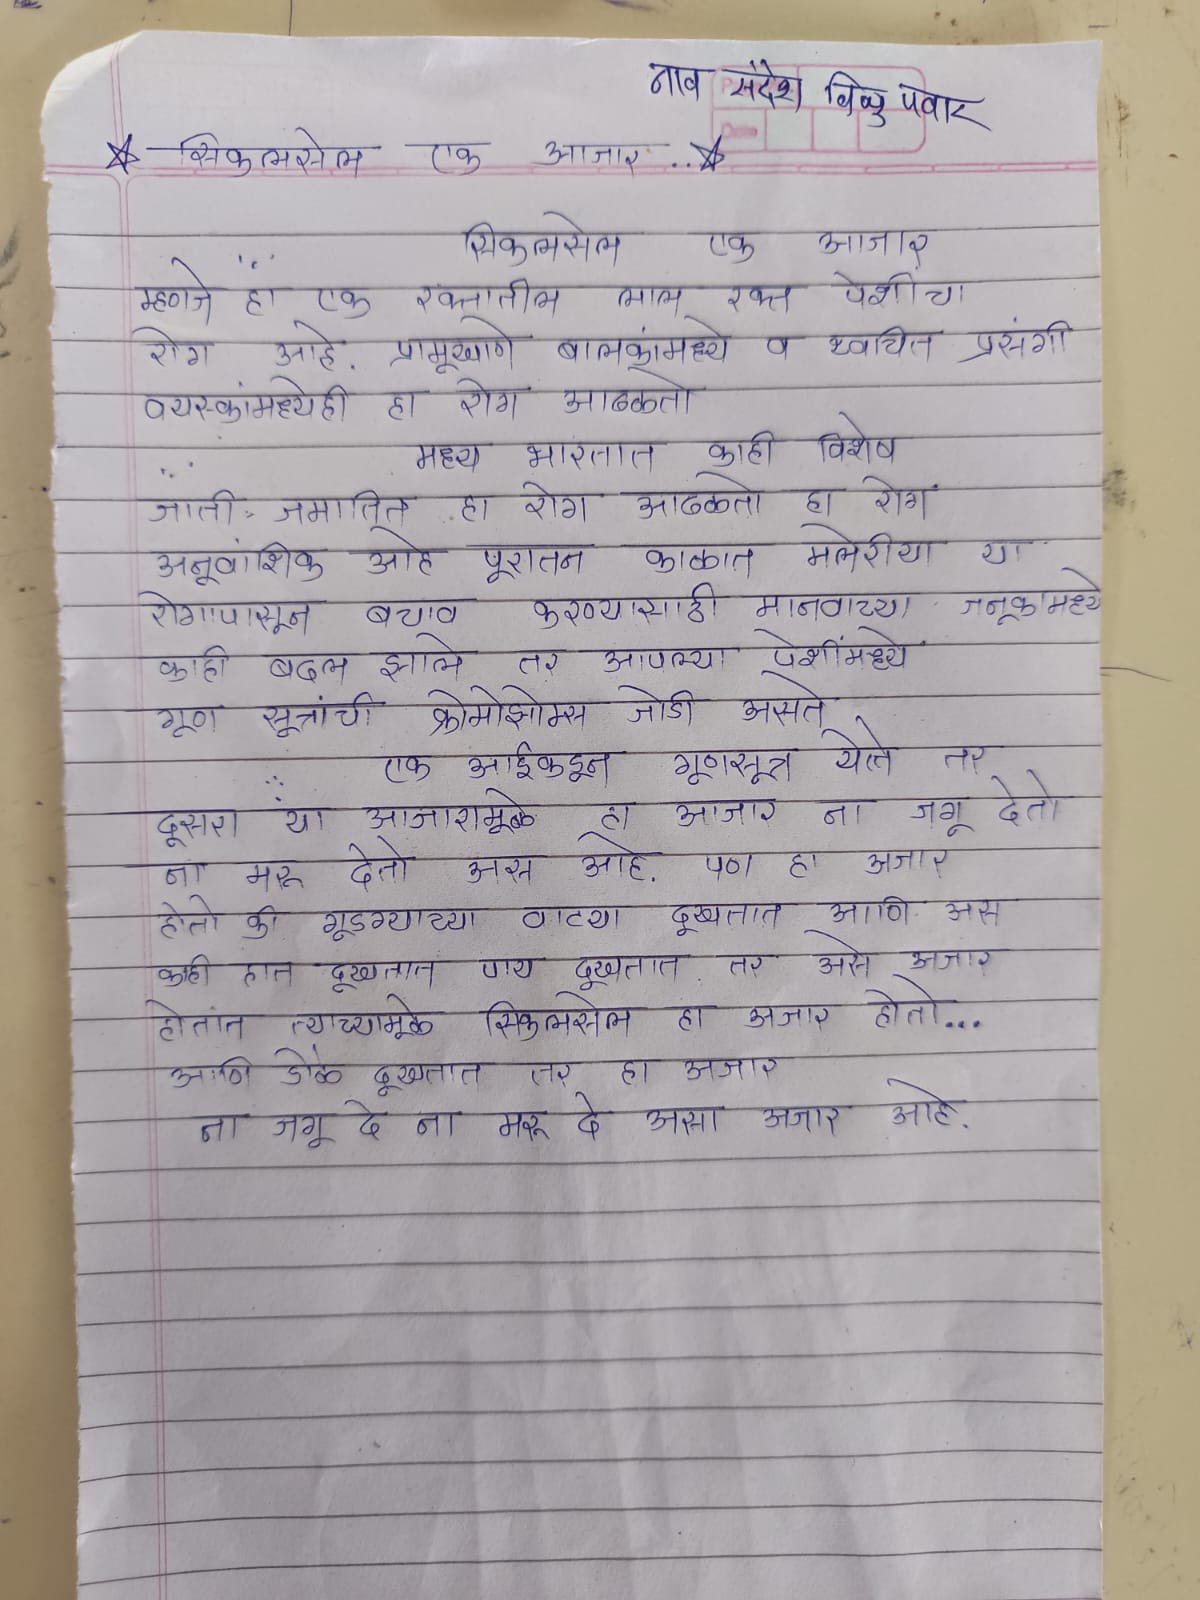 नाव संदेश विष्णु पवार
सिकलसेल एक आजार..
सिकलसेल एक आजार
म्हणजे हा एक रक्तातील लाल रक्त पेशींचा
रोग आहे. प्रामूख्याणे बालकांमध्ये व क्वचित प्रसंगी
वयस्कांमध्येही हा रोग आढळतो
मध्य भारतात काही विशेष
जाती: जमातित हा रोग आढळतो हा रोग
अनूवांशिक आहे पूरातन काळात मलेरीया या
रोगापासून बचाव करण्यासाठी मानवाच्या जनूकांमध्ये
काही बदल झाले तर आपल्या पेशींमध्ये
गूण सूत्रांची क्रोमोझोम्स जोडी असते
एक आईकडून गूणसूत्र येते तर
दूसरा या आजारामूळे हा आजार ना जगू देतो
ना मरू देतो अस आहे. पण हा अजार
होतो की गूडग्याच्या वाट्या दूखतात आणि अस
काही हात दूखतात पाय दूखतात तर असे अजार
होतात त्याच्यामूळे सिकलसेल हा अजार होतो...
आणि डोळे दूखतात तर हा अजार
ना जगू दे ना मरू दे असा अजार आहे.